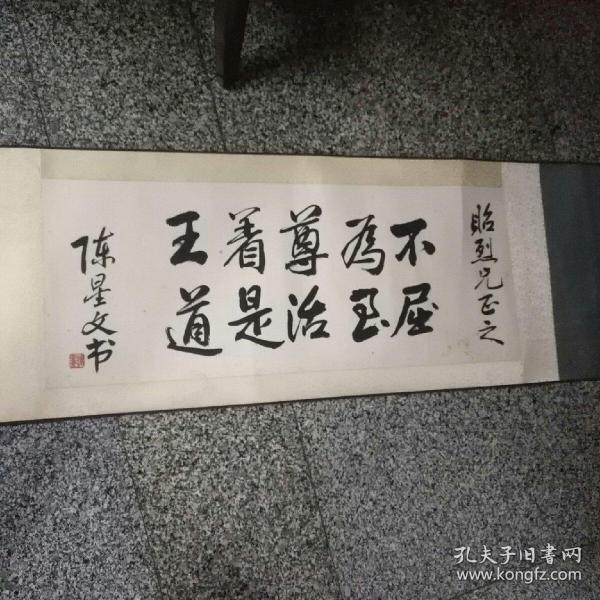 貽烈兄正之
不屈
為至
尊治
着是
王道
陈星文书
孔夫子旧書网
www.kongfz.com